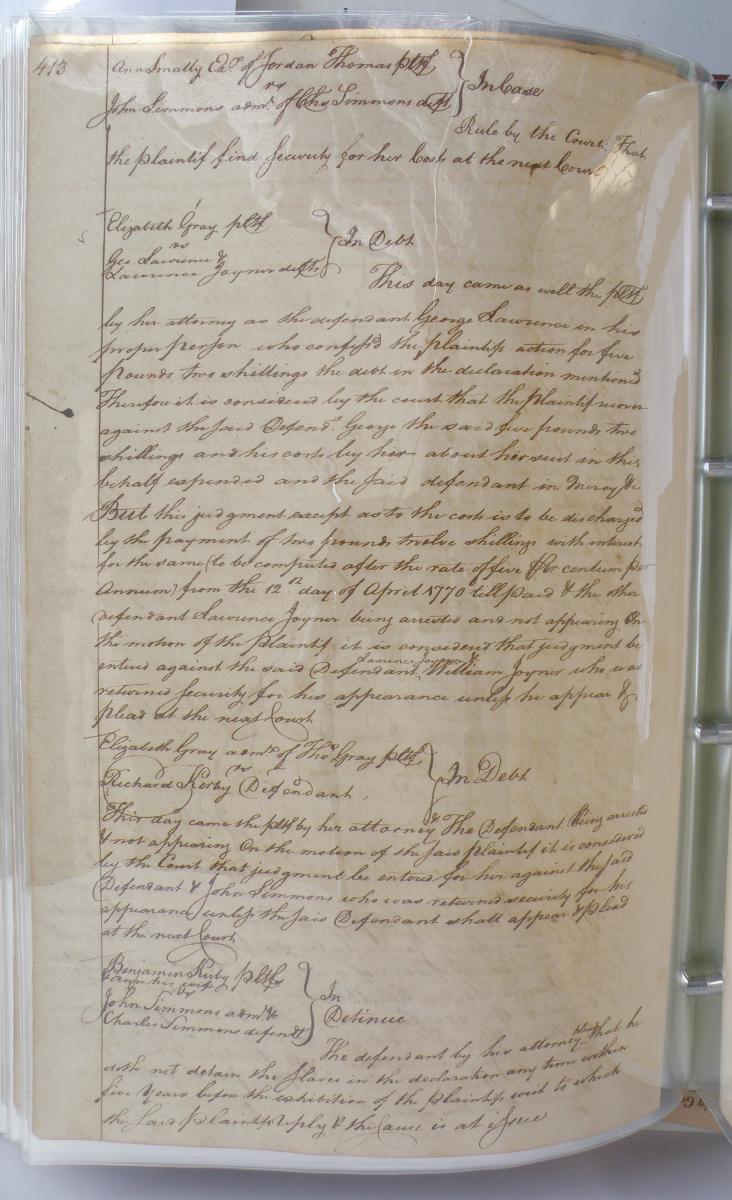 413
Ann Smally Exr. of Jordan Thomas pltf
vs
John Simmons admr. of Chs Simmons deft
In Case
Rule by the Court; That
the plaintif find Security for her Costs at the next Court
Elizabeth Gray pltf
vs
Geo Lawrence &
Lawrence Joyner defts
In Debt
This day came as well the pltf
by her attorney as the defendant George Lawrence in his
proper person who confess'd the plaintifs action for five
pounds two shillings the debt in the declaration mention'd
Therefore it is considered by the court that the plaintif recover
against the said Defendt. George the said five pounds two
shillings and his costs by her about her suit in this
behalf expended and the said defendant in Mercy &c
But this judgment except as to the costs is to be discharged
by the payment of two pounds twelve shillings with interest
for the same (to be computed after the rate of five Per centum per
Annum) from the 12th day of April 1770 till paid & the other
defendant Lawrence Joyner being arrested and not appearing On
the motion of the plaintif it is considered that judgment be
entered against the said Defendant Lawrence Joyner & William Joyner who was
returned security for his appearance unless he appear &
plead at the next Court
Elizabeth Gray admx of Thos Gray pltf
vs
Richard Kirby Defendant
In Debt
This day came the pltf by her attorney The Defendant being arrested
& not appearing On the motion of the said plaintif it is considered
by the Court that judgment be entered for her against the said
Defendant & John Simmons who was returned security for his
appearance unless the said Defendant shall appear & plead
at the next Court
Benjamin Kirby pltfs
& ann his wife
vs
John Simmons admr. &c
Charles Simmons defendt
In
Detinue
The defendant by his attorney pleads that he
doth not detain the slaves in the declaration any time within
five Years before the exhibition of the plaintifs writ to which
the said plaintifs reply & the Cause is at issue